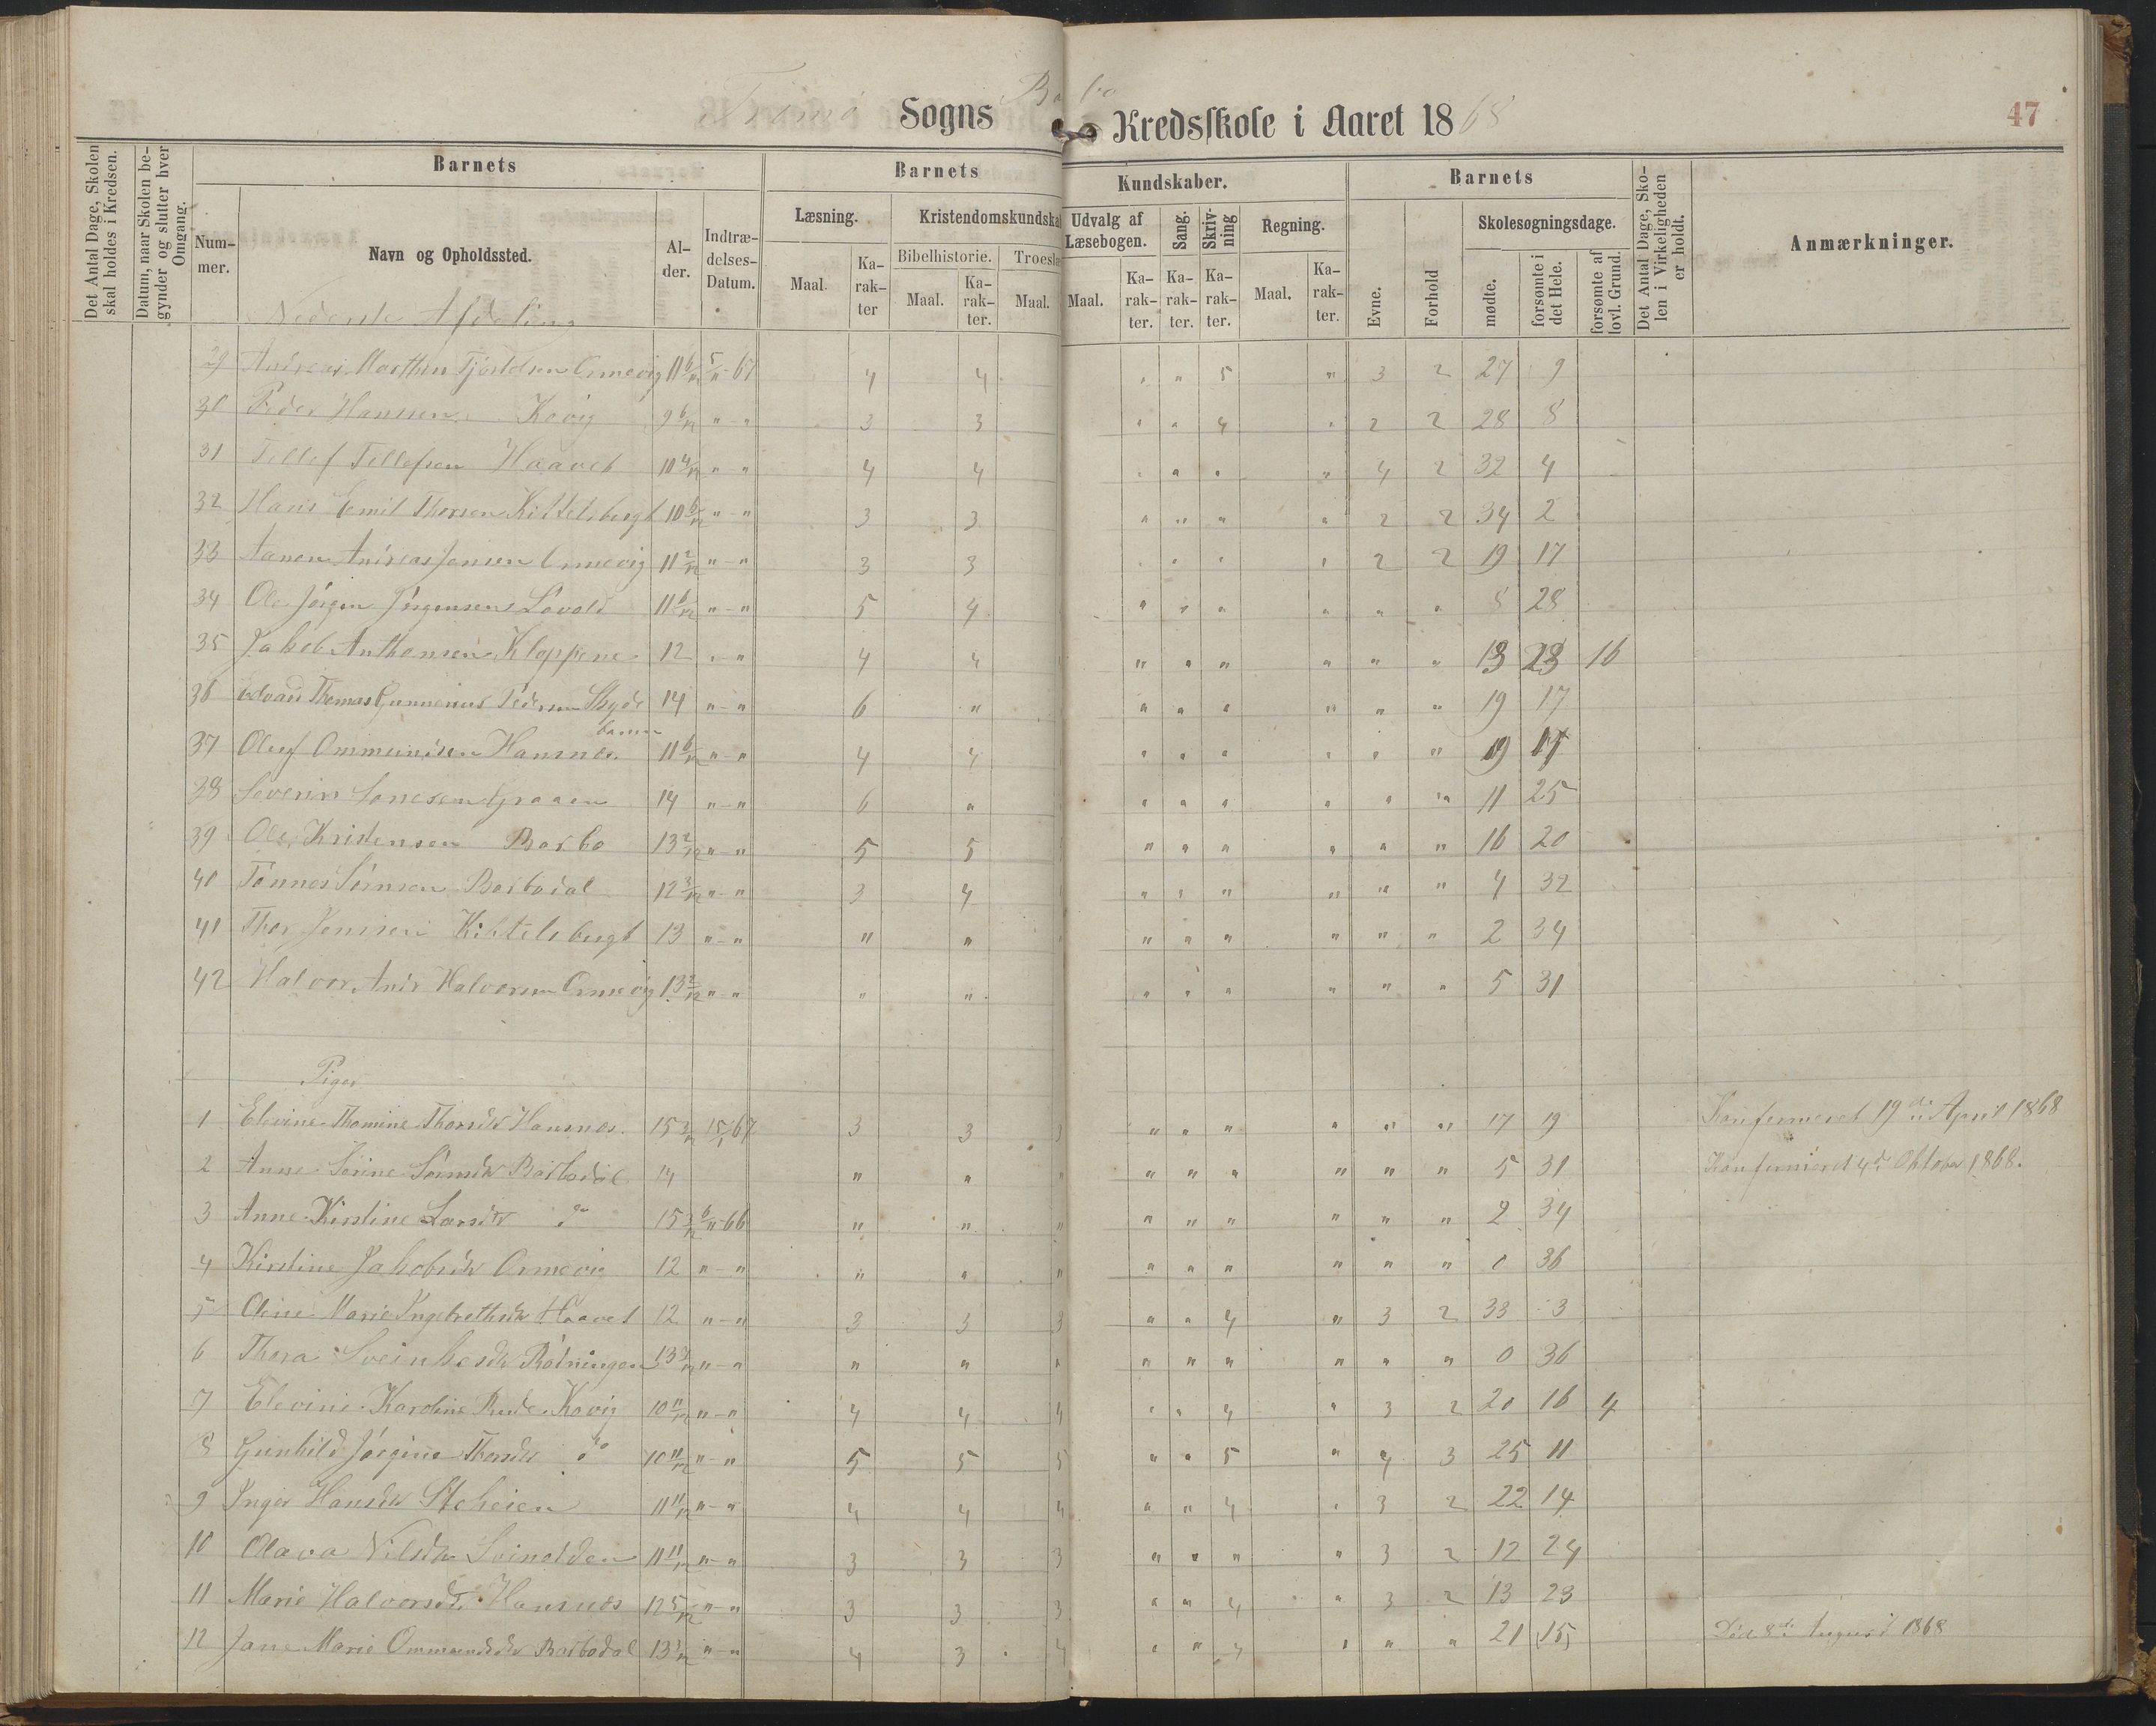 Tromø Sogns Barbo Kredsskole i Aaret 1868
47
Det Antal Dage, Skolen skal holdes i Kredsen.
Datum, naar Skolen begynder og slutter hver Omgang.
Barnets
Barnets
Kundskaber.
Barnets
Det Antal Dage, Skolen i Virkeligheden er holdt.
Anmærkninger.
Nummer.
Navn og Opholdssted.
Alder.
Indtrædelses-Datum.
Læsning.
Kristendomskundskab
Udvalg af Læsebogen.
Sang.
Skrivning
Regning.
Evne.
Forhold
Skolesøgningsdage.
Maal.
Karakter
Bibelhistorie.
Maal.
Karakter.
Troeslæ
Maal.
Maal.
Karakter.
Karakter.
Karakter.
Maal.
Karakter.
mødte.
forsømte i det Hele.
forsømte af lovl. Grund.
Nederste Afdeling
29 Andreas Marthin Tjostolsen Ormevig 11 6/12 5/11-67 4 4 " " 5 " 3 2 27 9
30 Peder Hansen Kovig 9 6/12 " - " 3 3 " " 4 " 2 2 28 8
31 Tellef Tellefsen Haavet 10 4/12 " " 4 4 " " " " 4 2 32 4
32 Hans Emil Thorsen Kittelsbugt 10 6/12 " - " 3 3 " " " " 2 2 34 2
33 Aanen Andreas Jensen Ormevig 11 2/12 " - " 3 3 " " " " 2 2 19 17
34 Ole Jörgen Jörgensen Lövold 11 6/12 " - " 5 4 " " " " " " 8 28
35 Jakob Anthonsen Kloppene 12 " - " 4 4 " " " " " " 13 23 16
36 Edvard Thomas Gunnerius Pedersen Skyds 14 " - " 6 " " " " " " " 19 17
37 Oluf Ommundsen Hansnæs 11 6/12 " - " 4 4 " " " " " " 19 17
38 Severin Sørensen Graaen 14 " - " 6 " " " " " " " 11 25
39 Ole Kristensen Barbo 13 2/12 " - " 5 5 " " " " " " 16 20
40 Tönnes Sörensen Barbodal 12 3/12 " - " 3 4 " " " " " " 4 32
41 Thor Jensen Kittelsbugt 13 " - " " " " " " " " " 2 34
42 Halvor Andr Halvorsen Ormevig 13 2/12 " - " " " " " " " " " 5 31
Piger
1 Elevine Thomine Thorsdtr Hansnæs 15 3/12 15/1 67 3 3 3 " " " " " " 17 19 Konfirmeret 19de April 1868
2 Anne Sörine Sörensdtr Barbodal 14 " " " " " " " " " 5 31 Konfirmeret 4de Oktober 1868.
3 Anne Kirstine Larsdtr do 15 3/12 6/11-66 " " " " " " " " " 2 34
4 Kirstine Jakobsdtr Ormevig 12 " - " " " " " " " " " " 0 36
5 Oline Marie Ingebrethsdtr Haavet 12 " - " 3 3 3 " " 4 " 3 2 33 3
6 Thora Sveinkesdtr Rödningen " - " " " " " " " " " " 0 36
7 Elevine Karoline Kovig 10 11/12 " - " 4 4 4 " " 4 " 3 2 20 16 4
8 Gunhild Jörgine Thorsdtr do 10 11/12 " - " 5 5 5 " " 5 " 4 3 25 11
9 Inger Hansdtr Steheien 11 11/12 " - " 4 4 4 " " 4 " 3 2 22 14
10 Olava Nilsdtr Svinodden 11 11/12 " - " 3 3 3 " " " " 3 2 12 24
11 Marie Halvorsdtr Hansnæs 12 5/12 " - " 3 3 3 " " 4 " 3 2 13 23
12 Jane Marie Ommundsdtr Barbodal 13 1/12 " - " 4 3 4 " " 4 " " " 21 (15) Död 8de August 1868